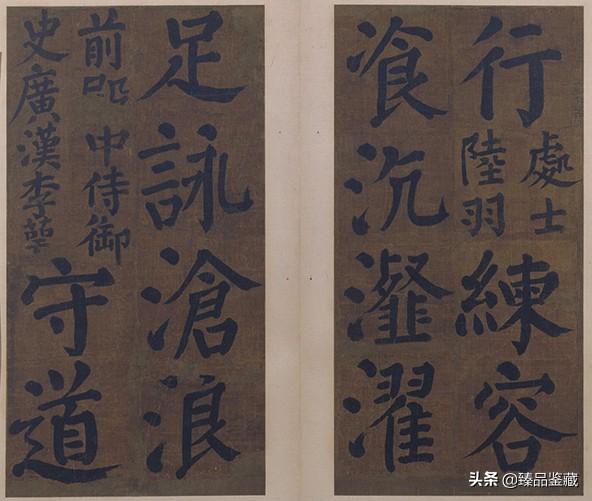 行
處士
陸羽
練容
飡沆瀣濯
足詠滄浪
前 中侍御
史廣漢李萼
守道
头条 @臻品鉴藏